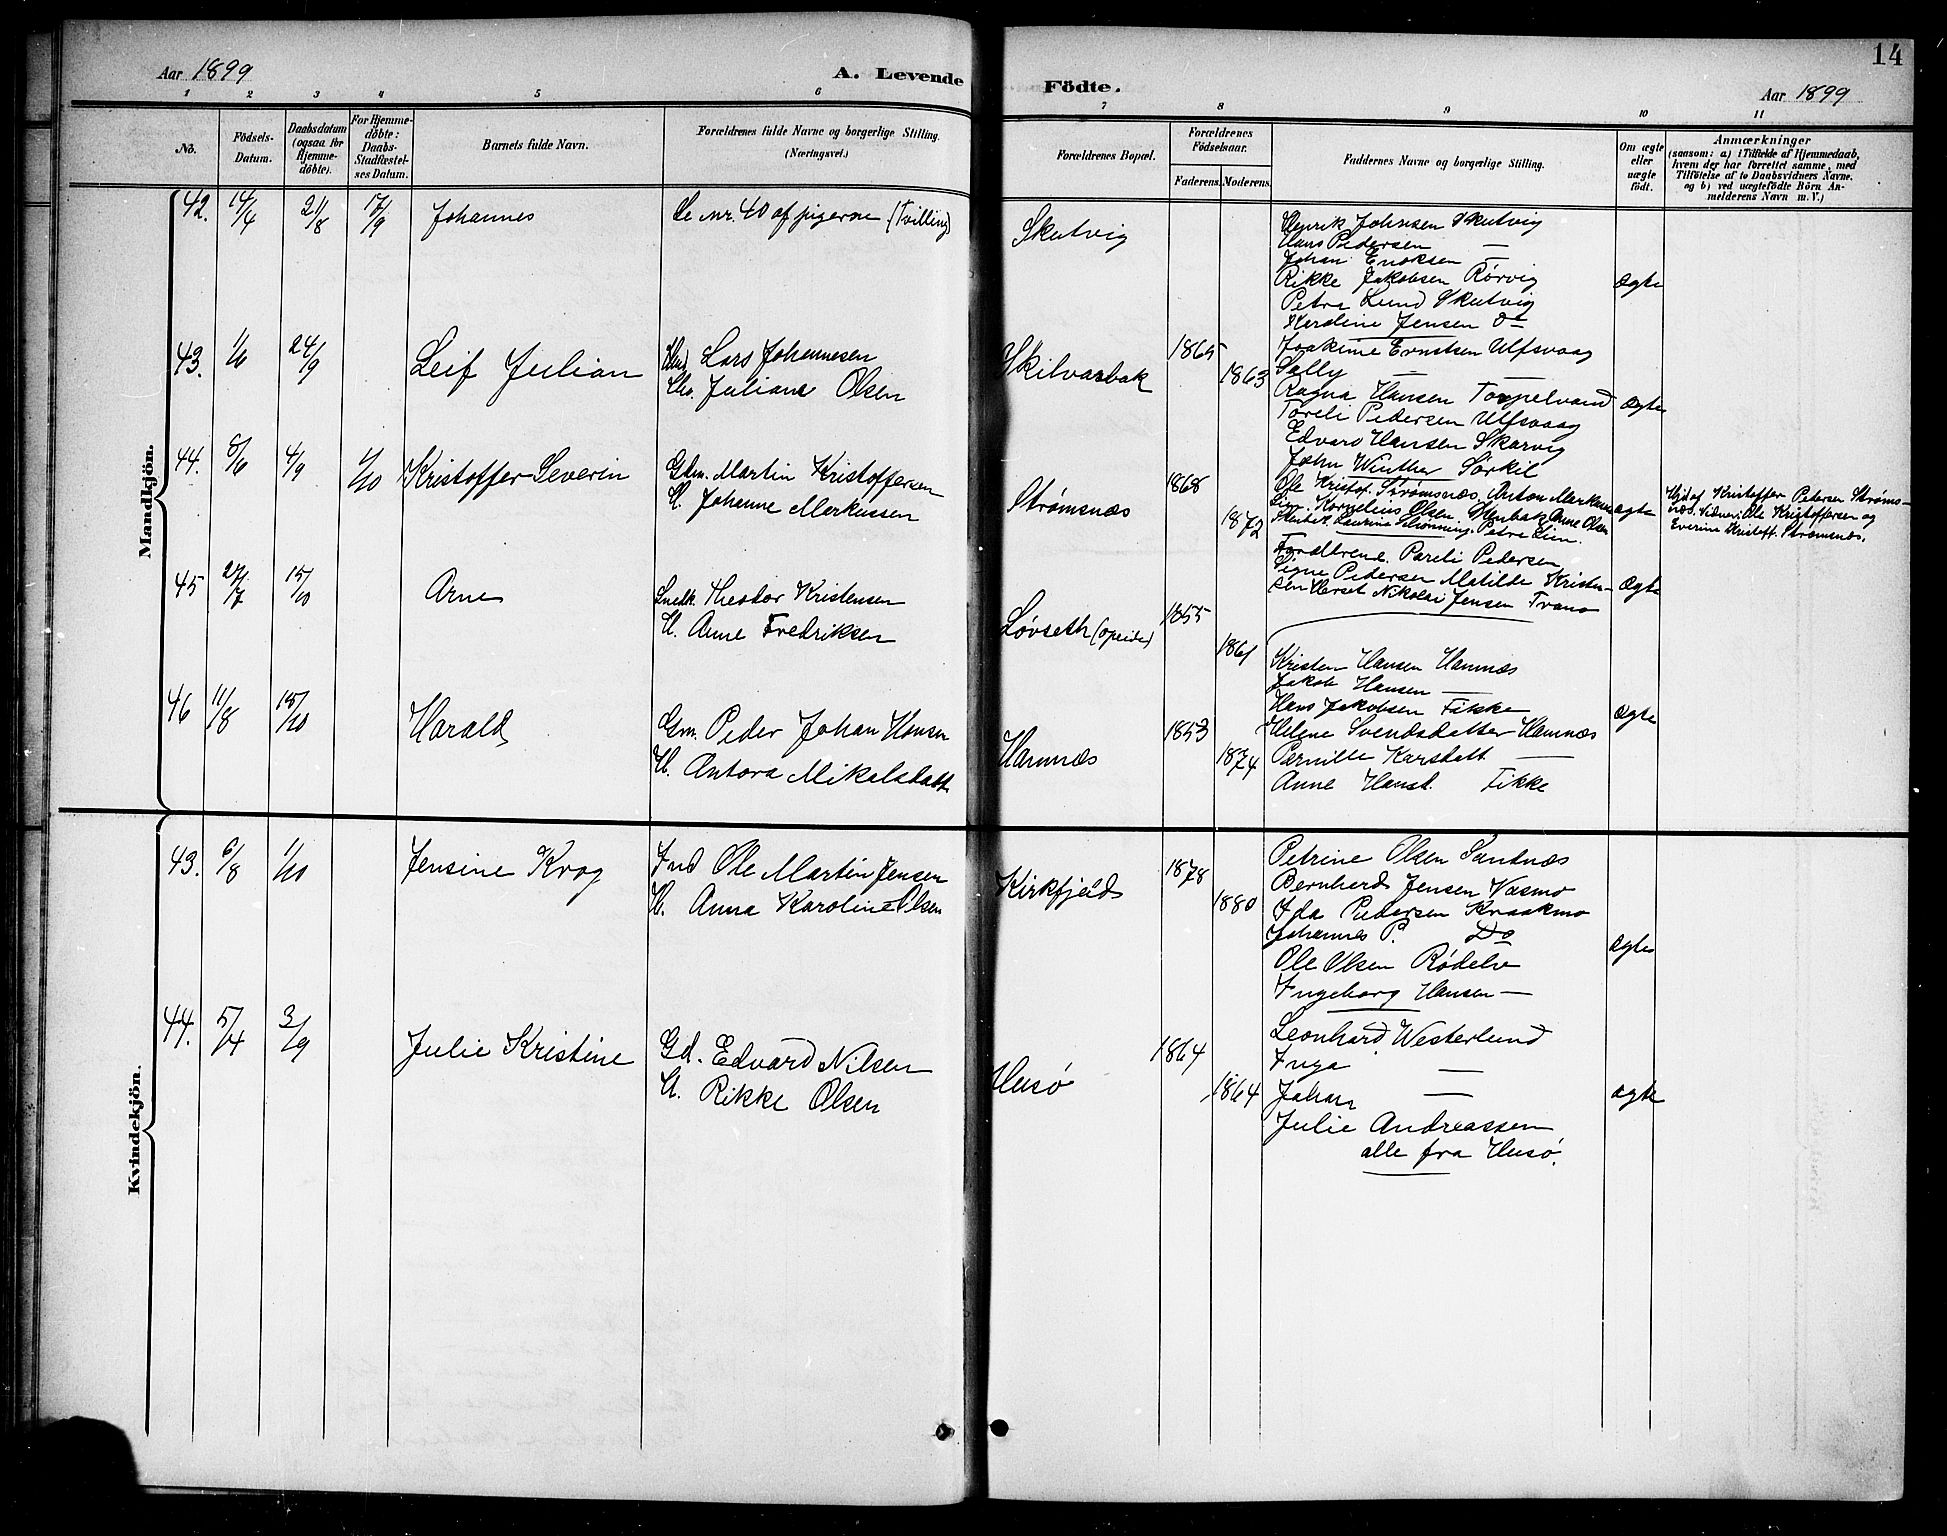 14
Aar 1899
A. Levende Födte.
Aar 1899
1 2 3 4 5 6 7 8 9 10 11
No.
Födsels-
Datum.
Daabsdatum
(ogsaa for
Hjemme-
döbte).
For Hjemme-
döbte:
Daabs-
Stadfæstel-
ses Datum.
Barnets fulde Navn.
Forældrenes fulde Navne og borgerlige Stilling.
(Næringsvei.)
Forældrenes Bopæl.
Forældrenes
Födselsaar.
Faderens. Moderens.
Faddernes Navne og borgerlige Stilling.
Om ægte
eller
uægte
født.
Anmærkninger
(saasom: a) i Tilfælde af Hjemmedaab,
hvem der har forrettet samme, med
Tilföielse af to Daabsvidners Navne.
og b) ved uægtefödte Börn An-
melderens Navn m. V.)
Mandkjön.
42. 14/4 21/8 17/9 Johannes
Se nr. 40 af pigerne (Tvilling)
Skutvig
Henrik Johnsen Skutvig
Hans Pedersen —
Johan Enoksen —
Rikke Jakobsen Rörvig
Petra Lund Skutvig
Jensen Do
ægte
43. 1/6 24/9 Leif Julian
Lars Johannesen
Juliane Olsen
Skilvasbak
1865
1863
Joakime Erntsen Ulfsvaag
Sally —
Ragna Hansen Toppelvand
Toreli Pedersen Ulfsvaag
Edvard Hansen Skarvig
John Winther Sörkil
ægte
44. 8/6 4/9 1/10 Kristoffer Severin
Gbm. Martin Kristoffersen
H. Johanne Markussen
Strømsnæs
1868
1872
Ole Kristof. Strømsnæs, Anton Markuss
Kornelius Olsen Stenbak Anne Olsen
Stenbak, Laurine Schønning, Petra Lien.
ægte
Hjd af Kristoffer Pedersen Strøms-
næs. Vidner: Ole Kristoffersen og
Everine Kristoff. Strømsnæs.
45 27/7 15/10 Arne
Snedk. Theodor Kristensen
H. Anne Fredriksen
Løvseth (Opeide)
1855
1861
Forældrene. Pareli Pedersen
Signe Pedersen Matilde Kristen-
sen Nikolai Jensen
ægte
46 11/8 15/10 Harald
Gm. Peder Johan Hansen
H. Antora Mikalsdatt
Hamnæs
1853
1874
Kristen Hansen Hamnæs
Jakob Hansen —
Hans Jakobsen Fikke
Helene Svendsdatter Hamnæs
Pernille Karsdatt —
Anne Hansd. Fikke
ægte
Kvindekjön.
43. 6/8 1/10 Jensine Krog
Ind Ole Martin Jensen
H. Anna Karoline Olsen
Kirkfjeld
1878
1880
Petrine Olsen Sandnæs
Bernhard Jensen Vasmo
Ida Pedersen Kraakmo
Johannes P. Do
Ole Olsen Rødelv
Ingeborg Hansen —
ægte
44. 5/4 3/9 Julie Kristine
Gd. Edvard Nilsen
H. Rikke Olsen
Husø
1864
1864
Leonhard Westerlund
Inga —
Johan —
Julie Andreassen
alle fra Husø.
ægte